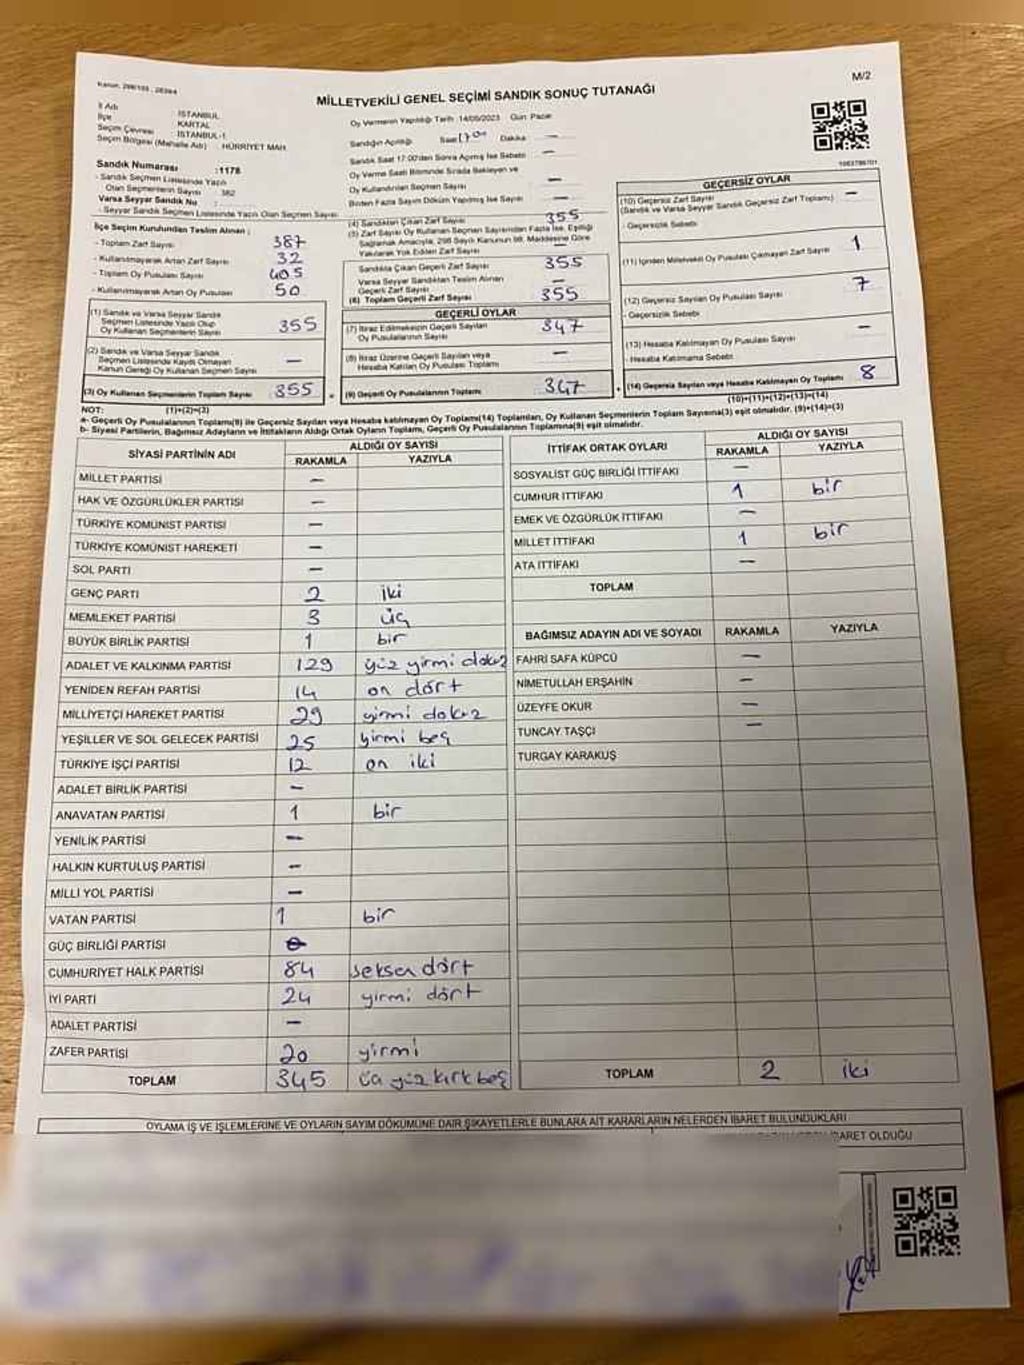 Kanun: 298/105, 2839/4
M/2
MİLLETVEKİLİ GENEL SEÇİMİ SANDIK SONUÇ TUTANAĞI
İl Adı : İSTANBUL
İlçe : KARTAL
Seçim Çevresi : İSTANBUL-1
Seçim Bölgesi (Mahalle Adı) : HÜRRİYET MAH.
Sandık Numarası :1178
- Sandık Seçmen Listesinde Yazılı Olan Seçmenlerin Sayısı : 382
Varsa Seyyar Sandık No :
- Seyyar Sandık Seçmen Listesinde Yazılı Olan Seçmen Sayısı:
Oy Vermenin Yapıldığı Tarih :14/05/2023 Gün: Pazar
Sandığın Açıldığı Saat 17 00 Dakika: —
Sandık Saat 17:00'den Sonra Açılmış İse Sebebi —
Oy Verme Saati Bitiminde Sırada Bekleyen ve
Oy Kullandırılan Seçmen Sayısı —
Birden Fazla Sayım Döküm Yapılmış İse Sayısı —
İlçe Seçim Kurulundan Teslim Alınan :
- Toplam Zarf Sayısı 387
- Kullanılmayarak Artan Zarf Sayısı 32
- Toplam Oy Pusulası Sayısı 405
- Kullanılmayarak Artan Oy Pusulası 50
(1) Sandık ve Varsa Seyyar Sandık Seçmen Listesinde Yazılı Olup Oy Kullanan Seçmenlerin Sayısı 355
(2) Sandık ve Varsa Seyyar Sandık Seçmen Listesinde Kaydı Olmayan Kanun Gereği Oy Kullanan Seçmen Sayısı —
(3) Oy Kullanan Seçmenlerin Toplam Sayısı 355
(1)+(2)=(3)
(4) Sandıktan Çıkan Zarf Sayısı 355
(5) Zarf Sayısı Oy Kullanan Seçmen Sayısından Fazla İse, Eşitliği Sağlamak Amacıyla, 298 Sayılı Kanunun 98. Maddesine Göre Yakılarak Yok Edilen Zarf Sayısı —
Sandıkta Çıkan Geçerli Zarf Sayısı 355
Varsa Seyyar Sandıktan Teslim Alınan Geçerli Zarf Sayısı —
(6) Toplam Geçerli Zarf Sayısı 355
GEÇERLİ OYLAR
(7) İtiraz Edilmeksizin Geçerli Sayılan Oy Pusulalarının Sayısı 347
(8) İtiraz Üzerine Geçerli Sayılan veya Hesaba Katılan Oy Pusulaları Toplamı —
(9) Geçerli Oy Pusulalarının Toplamı 347
GEÇERSİZ OYLAR
(10) Geçersiz Zarf Sayısı —
(Sandık ve Varsa Seyyar Sandık Geçersiz Zarf Toplamı)
- Geçersizlik Sebebi
(11) İçinden Milletvekili Oy Pusulası Çıkmayan Zarf Sayısı 1
(12) Geçersiz Sayılan Oy Pusulası Sayısı 7
- Geçersizlik Sebebi:
(13) Hesaba Katılmayan Oy Pusulası Sayısı —
- Hesaba Katılmama Sebebi
(14) Geçersiz Sayılan veya Hesaba Katılmayan Oy Toplamı 8
(10)+(11)+(12)+(13)=(14)
NOT:
a- Geçerli Oy Pusulalarının Toplamı(9) ile Geçersiz Sayılan veya Hesaba Katılmayan Oy Toplamı(14) Toplamları, Oy Kullanan Seçmenlerin Toplam Sayısına(3) eşit olmalıdır. (9)+(14)=(3)
b- Siyasi Partilerin, Bağımsız Adayların ve İttifakların Aldığı Ortak Oyların Toplamı, Geçerli Oy Pusulalarının Toplamına(9) eşit olmalıdır.
SİYASİ PARTİNİN ADI ALDIĞI OY SAYISI
RAKAMLA YAZIYLA
MİLLET PARTİSİ —
HAK VE ÖZGÜRLÜKLER PARTİSİ —
TÜRKİYE KOMÜNİST PARTİSİ —
TÜRKİYE KOMÜNİST HAREKETİ —
SOL PARTİ —
GENÇ PARTİ 2 iki
MEMLEKET PARTİSİ 3 üç
BÜYÜK BİRLİK PARTİSİ 1 bir
ADALET VE KALKINMA PARTİSİ 129 yüz yirmi dokuz
YENİDEN REFAH PARTİSİ 14 on dört
MİLLİYETÇİ HAREKET PARTİSİ 29 yirmi dokuz
YEŞİLLER VE SOL GELECEK PARTİSİ 25 yirmi beş
TÜRKİYE İŞÇİ PARTİSİ 12 on iki
ADALET BİRLİK PARTİSİ —
ANAVATAN PARTİSİ 1 bir
YENİLİK PARTİSİ —
HALKIN KURTULUŞ PARTİSİ —
MİLLİ YOL PARTİSİ —
VATAN PARTİSİ 1 bir
GÜÇ BİRLİĞİ PARTİSİ
CUMHURİYET HALK PARTİSİ 84 seksen dört
İYİ PARTİ 24 yirmi dört
ADALET PARTİSİ —
ZAFER PARTİSİ 20 yirmi
TOPLAM 345 üç yüz kırk beş
İTTİFAK ORTAK OYLARI ALDIĞI OY SAYISI
RAKAMLA YAZIYLA
SOSYALİST GÜÇ BİRLİĞİ İTTİFAKI —
CUMHUR İTTİFAKI 1 bir
EMEK VE ÖZGÜRLÜK İTTİFAKI —
MİLLET İTTİFAKI 1 bir
ATA İTTİFAKI —
TOPLAM
BAĞIMSIZ ADAYIN ADI VE SOYADI RAKAMLA YAZIYLA
FAHRİ SAFA KÜPCÜ —
NİMETULLAH ERŞAHİN —
ÜZEYFE OKUR —
TUNCAY TAŞÇI —
TURGAY KARAKUŞ
TOPLAM 2 iki
OYLAMA İŞ VE İŞLEMLERİNE VE OYLARIN SAYIM DÖKÜMÜNE DAİR ŞİKAYETLERLE BUNLARA AİT KARARLARIN NELERDEN İBARET BULUNDUKLARI
OLDUĞU